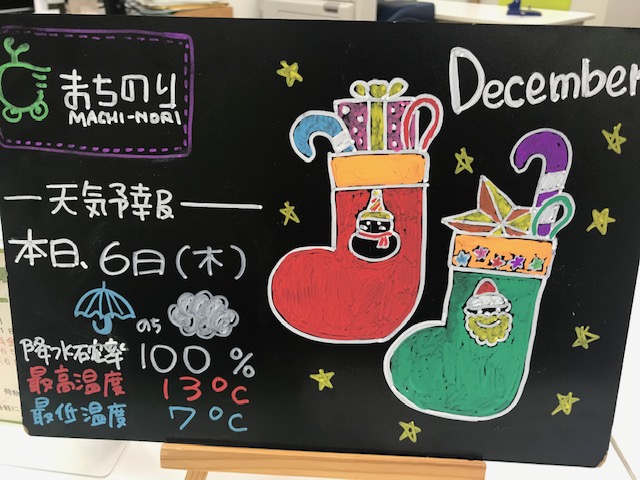 まちのり
MACHI-NORI
December
天気予報
本日、6日(木)
のち
降水確率 100 %
最高温度 13℃
最低温度 7℃